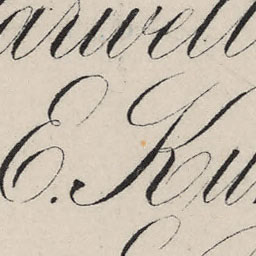 arwell
E. Ku